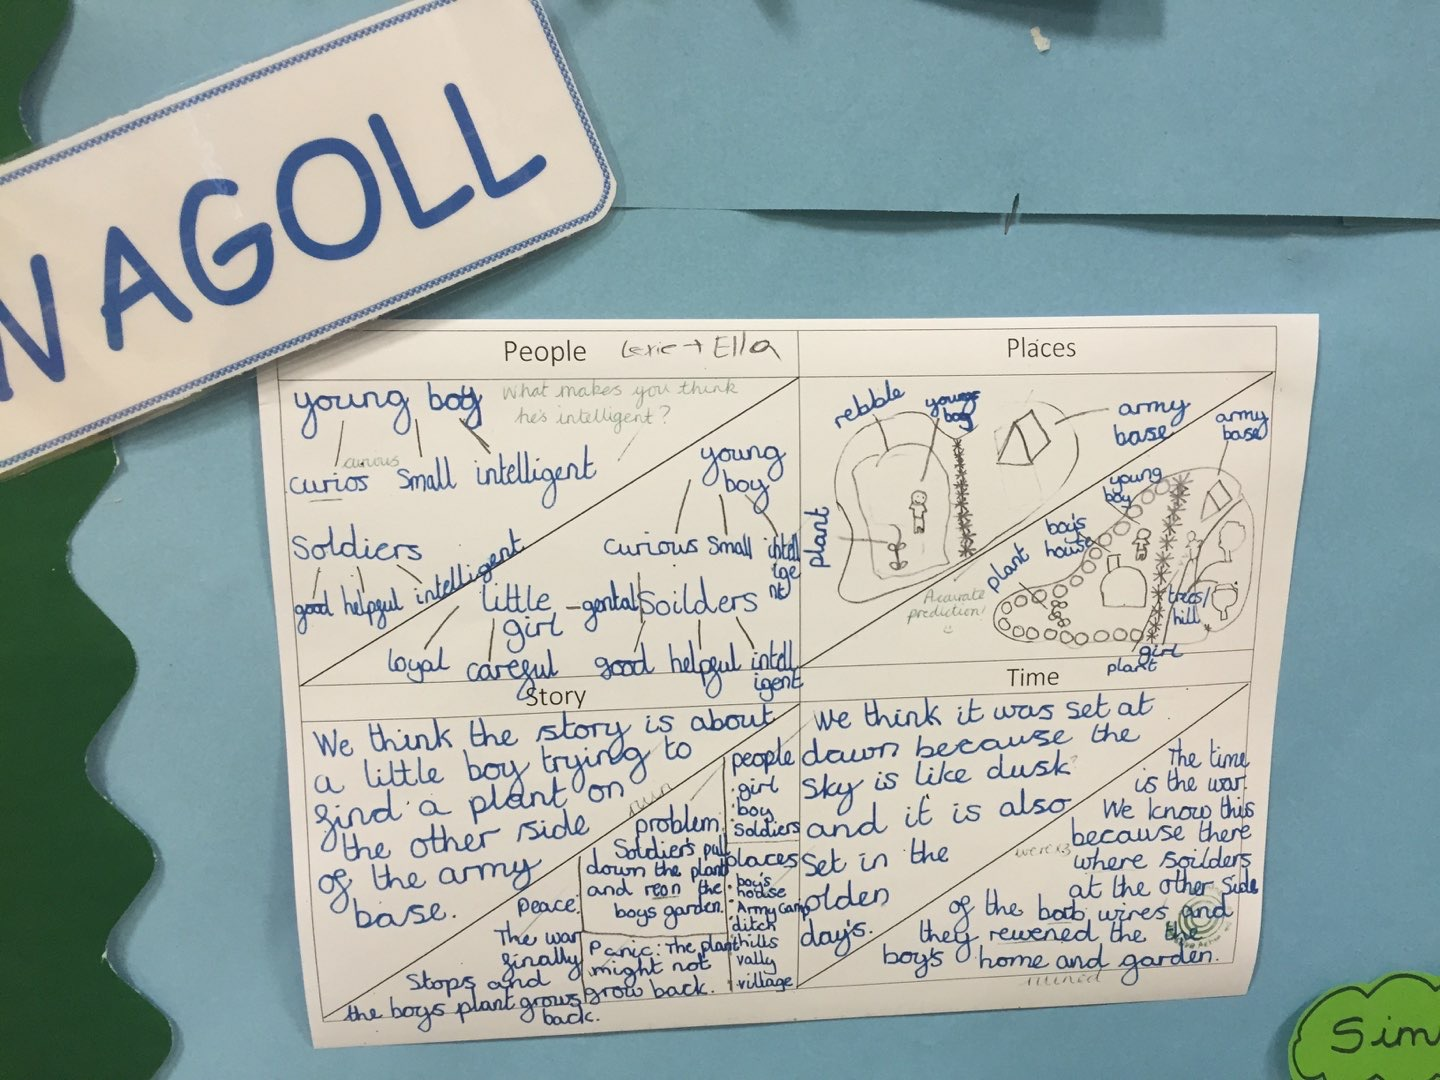 WAGOLL
People Lexie + Ella
young boy
What makes you think
he's intelligent?
curious
curios small intelligent
Soldiers
good helpful intelligent
young
boy
curious small intell
ige
nt
little
girl
gental
loyal careful
Soilders
good helpful intell
igent
Places
rebble
young
boy
army
base
plant
Accurate
prediction!
army
base
young
boy
boy's
house
plant
trees/
hill
girl
plant
Story
We think the story is about
a little boy trying to
find a plant on
the other side
of the army
base.
ruin
problem.
Soldier's pull
down the plant
and reon the
boys garden.
people
girl
boy
Soldiers
places
boy's
house
Army camp
ditch
hills
vally
village
Peace.
The war
finally
Stops and
the boys plant grows
back.
Panic: The plant
might not
grow back.
Time
We think it was set at
dawn because the
sky is like dusk
and it is also
set in the
olden
day's.
The time
is the war.
We know this
because there
were x3
where soilders
at the other side
of the barb wires and
they rewened the the
boy's home and garden.
ruined
Sim